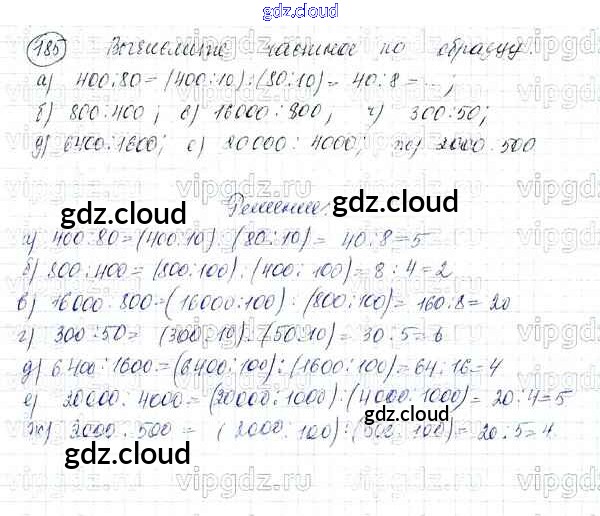 gdz.cloud
185 Вычислите частное по образцу.
а) 400:80=(400:10):(80:10)=40:8=...;
б) 800:400; в) 16000:800, г) 300:50;
д) 6400:1600; е) 20000:4000; ж) 2000:500
Решение.
gdz.cloud gdz.cloud
а) 400:80=(400:10):(80:10)=40:8=5
б) 800:400=(800:100):(400:100)=8:4=2
в) 16000:800=(16000:100):(800:100)=160:8=20
gdz.cloud
г) 300:50=(300:10):(50:10)=30:5=6
д) 6400:1600=(6400:100):(1600:100)=64:16=4
е) 20000:4000=(20000:1000):(4000:1000)=20:4=5
gdz.cloud
ж) 2000:500=(2000:100):(500:100)=20:5=4
gdz.cloud